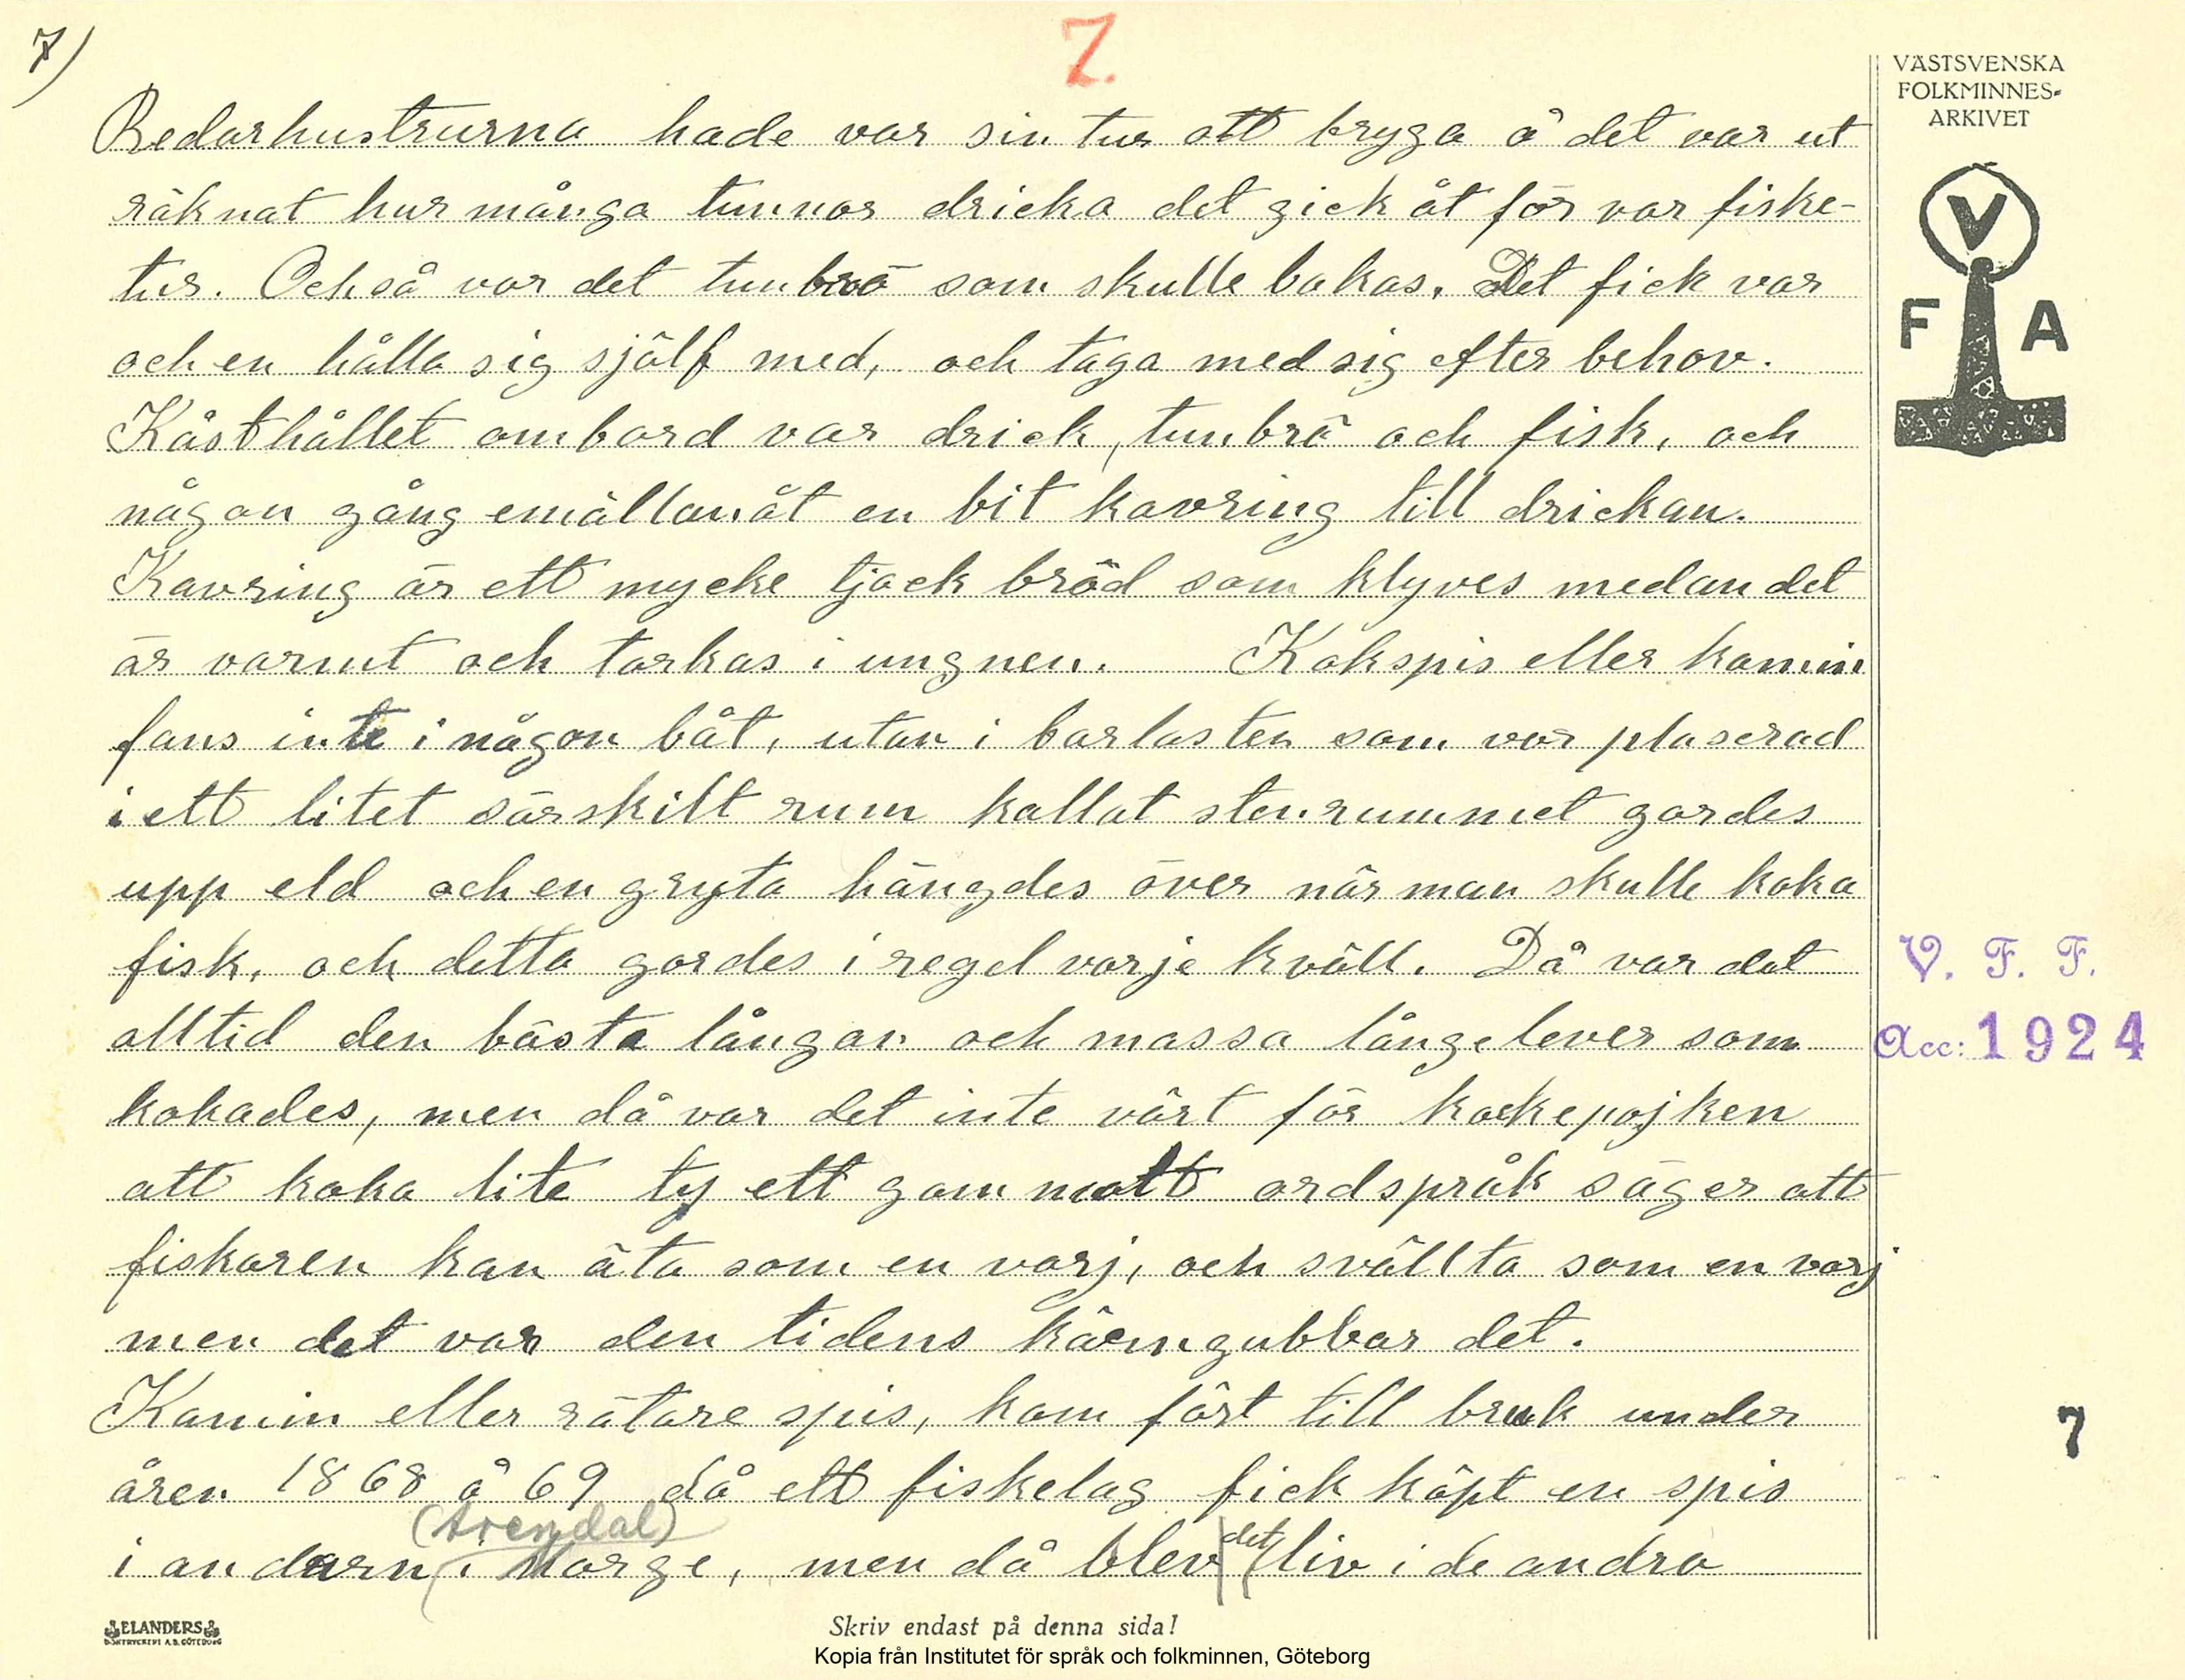 7)
7.
VÄSTSVENSKA
FOLKMINNES-
ARKIVET
V
F A
Redarhustrurna hade var sin tur att brygga å det var ut
räknat hur många tunnor dricka det gick åt för var fiske-
tur. Och så var det tunbrö som skulle bakas. Det fick var
och en hålla sig själf med, och taga med sig efter behov.
Kåsthållet ombord var drick, tunbrö och fisk, och
någon gång emällanåt en bit kavring till drickan.
Kavring är ett mycke tjock bröd som klyves medan det
är varmt och torkas i ungnen. Kokspis eller kamin
fans inte i någon båt, utan i barlasten som var plaserad
i ett litet särskilt rum kallat stenrummet gordes
upp eld och en gryta hängdes över när man skulle koka
fisk, och detta gordes i regel varje kväll. Då var det
alltid den bästa långan och massa långelever som
kokades, men då var det inte värt för kockepojken
att koka lite ty ett gammalt ordspråk säger att
fiskaren kan äta som en varj, och svällta som en varj
men det var den tidens kärngubbar det.
Kamin eller rätare spis, kom först till bruk under
åren 1868 å 69 då ett fiskelag fick köpt en spis
(Arendal)
i andarn i Norge, men då blev det liv i de andra
V. F. F.
Acc: 1924
7
ELANDERS
BOKTRYCKERI A.B. GÖTEBORG
Skriv endast på denna sida!
Kopia från Institutet för språk och folkminnen, Göteborg